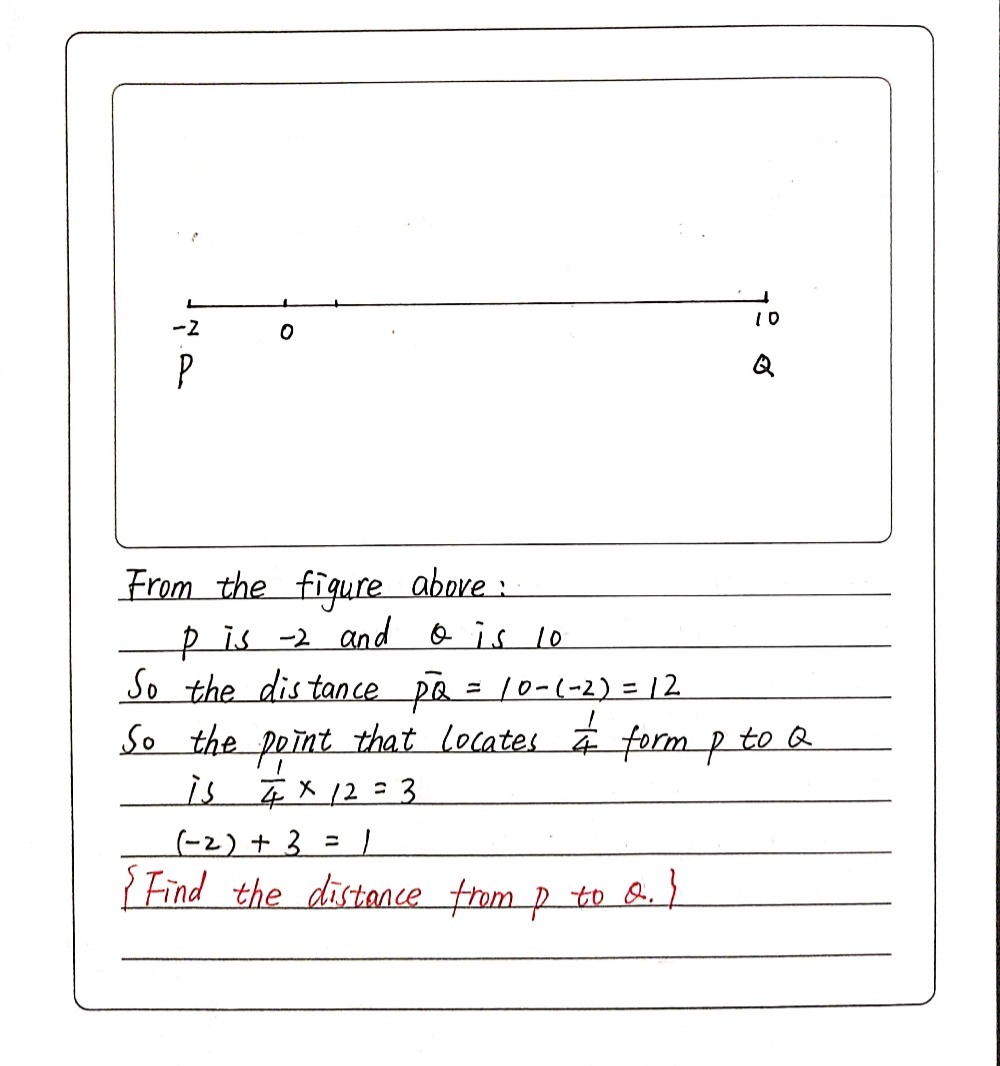 -2 0 10
P Q
From the figure above:
p is -2 and Q is 10
So the distance p̅Q̅ = 10-(-2) = 12
So the point that locates 1/4 form p to Q
is 1/4 × 12 = 3
(-2) + 3 = 1
{Find the distance from p to Q.}